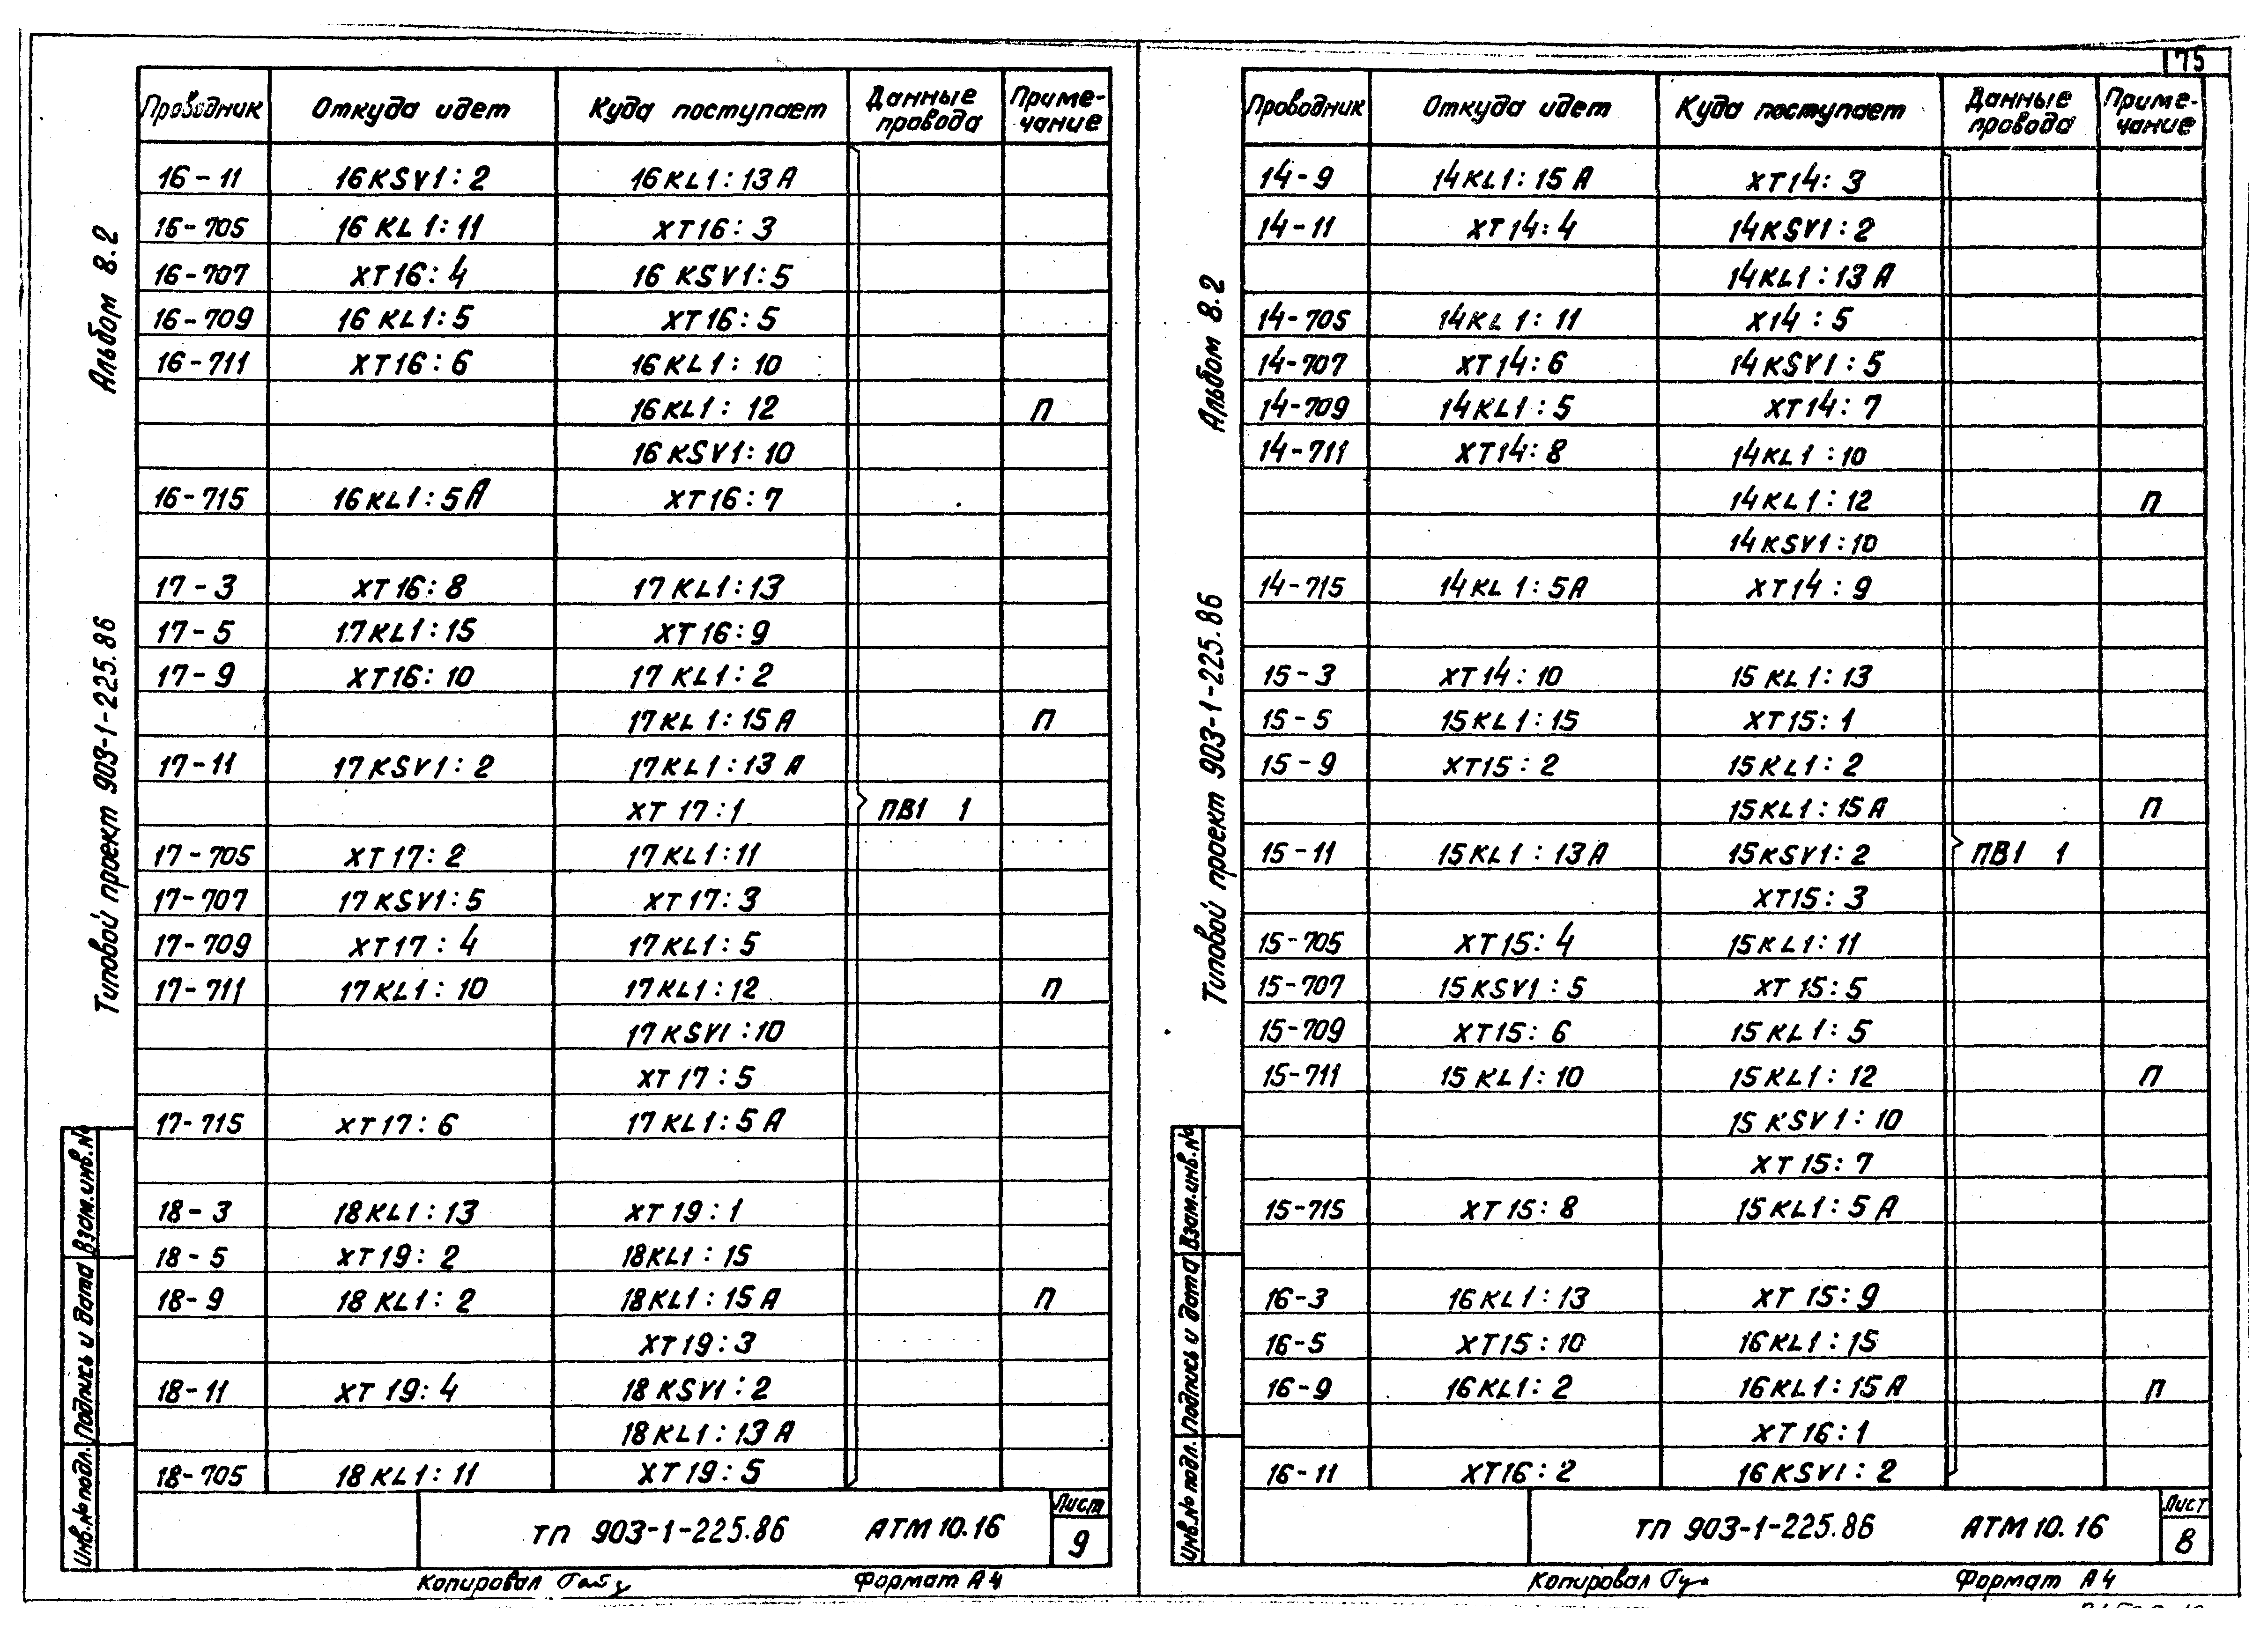 Альбом 8.2
Типовой проект 903-1-225.86
Взам.инв.№
Подпись и дата
Инв.№ подл.
Проводник Откуда идет Куда поступает Данные провода Приме-чание
16-11 16KSV1:2 16KL1:13А
16-705 16KL1:11 XT16:3
16-707 XT16:4 16KSV1:5
16-709 16KL1:5 XT16:5
16-711 XT16:6 16KL1:10
16KL1:12 П
16KSV1:10
16-715 16KL1:5А XT16:7
17-3 XT16:8 17KL1:13
17-5 17KL1:15 XT16:9
17-9 XT16:10 17KL1:2
17KL1:15А П
17-11 17KSV1:2 17KL1:13А
XT17:1 ПВ1 1
17-705 XT17:2 17KL1:11
17-707 17KSV1:5 XT17:3
17-709 XT17:4 17KL1:5
17-711 17KL1:10 17KL1:12 П
17KSV1:10
XT17:5
17-715 XT17:6 17KL1:5А
18-3 18KL1:13 XT19:1
18-5 XT19:2 18KL1:15
18-9 18KL1:2 18KL1:15А П
XT19:3
18-11 XT19:4 18KSV1:2
18KL1:13А
18-705 18KL1:11 XT19:5
ТП 903-1-225.86 АТМ10.16 Лист 9
Копировал Формат А4
75
Альбом 8.2
Типовой проект 903-1-225.86
Взам.инв.№
Подпись и дата
Инв.№ подл.
Проводник Откуда идет Куда поступает Данные провода Приме-чание
14-9 14KL1:15А XT14:3
14-11 XT14:4 14KSV1:2
14KL1:13А
14-705 14KL1:11 X14:5
14-707 XT14:6 14KSV1:5
14-709 14KL1:5 XT14:7
14-711 XT14:8 14KL1:10
14KL1:12 П
14KSV1:10
14-715 14KL1:5А XT14:9
15-3 XT14:10 15KL1:13
15-5 15KL1:15 XT15:1
15-9 XT15:2 15KL1:2
15KL1:15А П
15-11 15KL1:13А 15KSV1:2 ПВ1 1
XT15:3
15-705 XT15:4 15KL1:11
15-707 15KSV1:5 XT15:5
15-709 XT15:6 15KL1:5
15-711 15KL1:10 15KL1:12 П
15KSV1:10
XT15:7
15-715 XT15:8 15KL1:5А
16-3 16KL1:13 XT15:9
16-5 XT15:10 16KL1:15
16-9 16KL1:2 16KL1:15А П
XT16:1
16-11 XT16:2 16KSV1:2
ТП 903-1-225.86 АТМ10.16 Лист 8
Копировал Формат А4